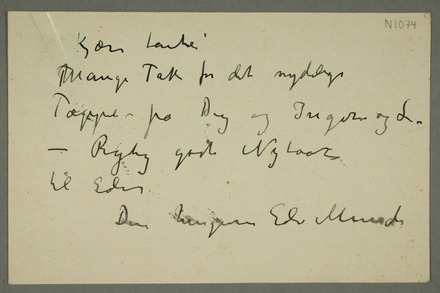 N1074
Kjære Tante!
Mange Tak for det nydelige
Tæppe – fra Dig og Inger og
– Rigtig godt Nytaar
til Eder
Din hengivne Edv Munch